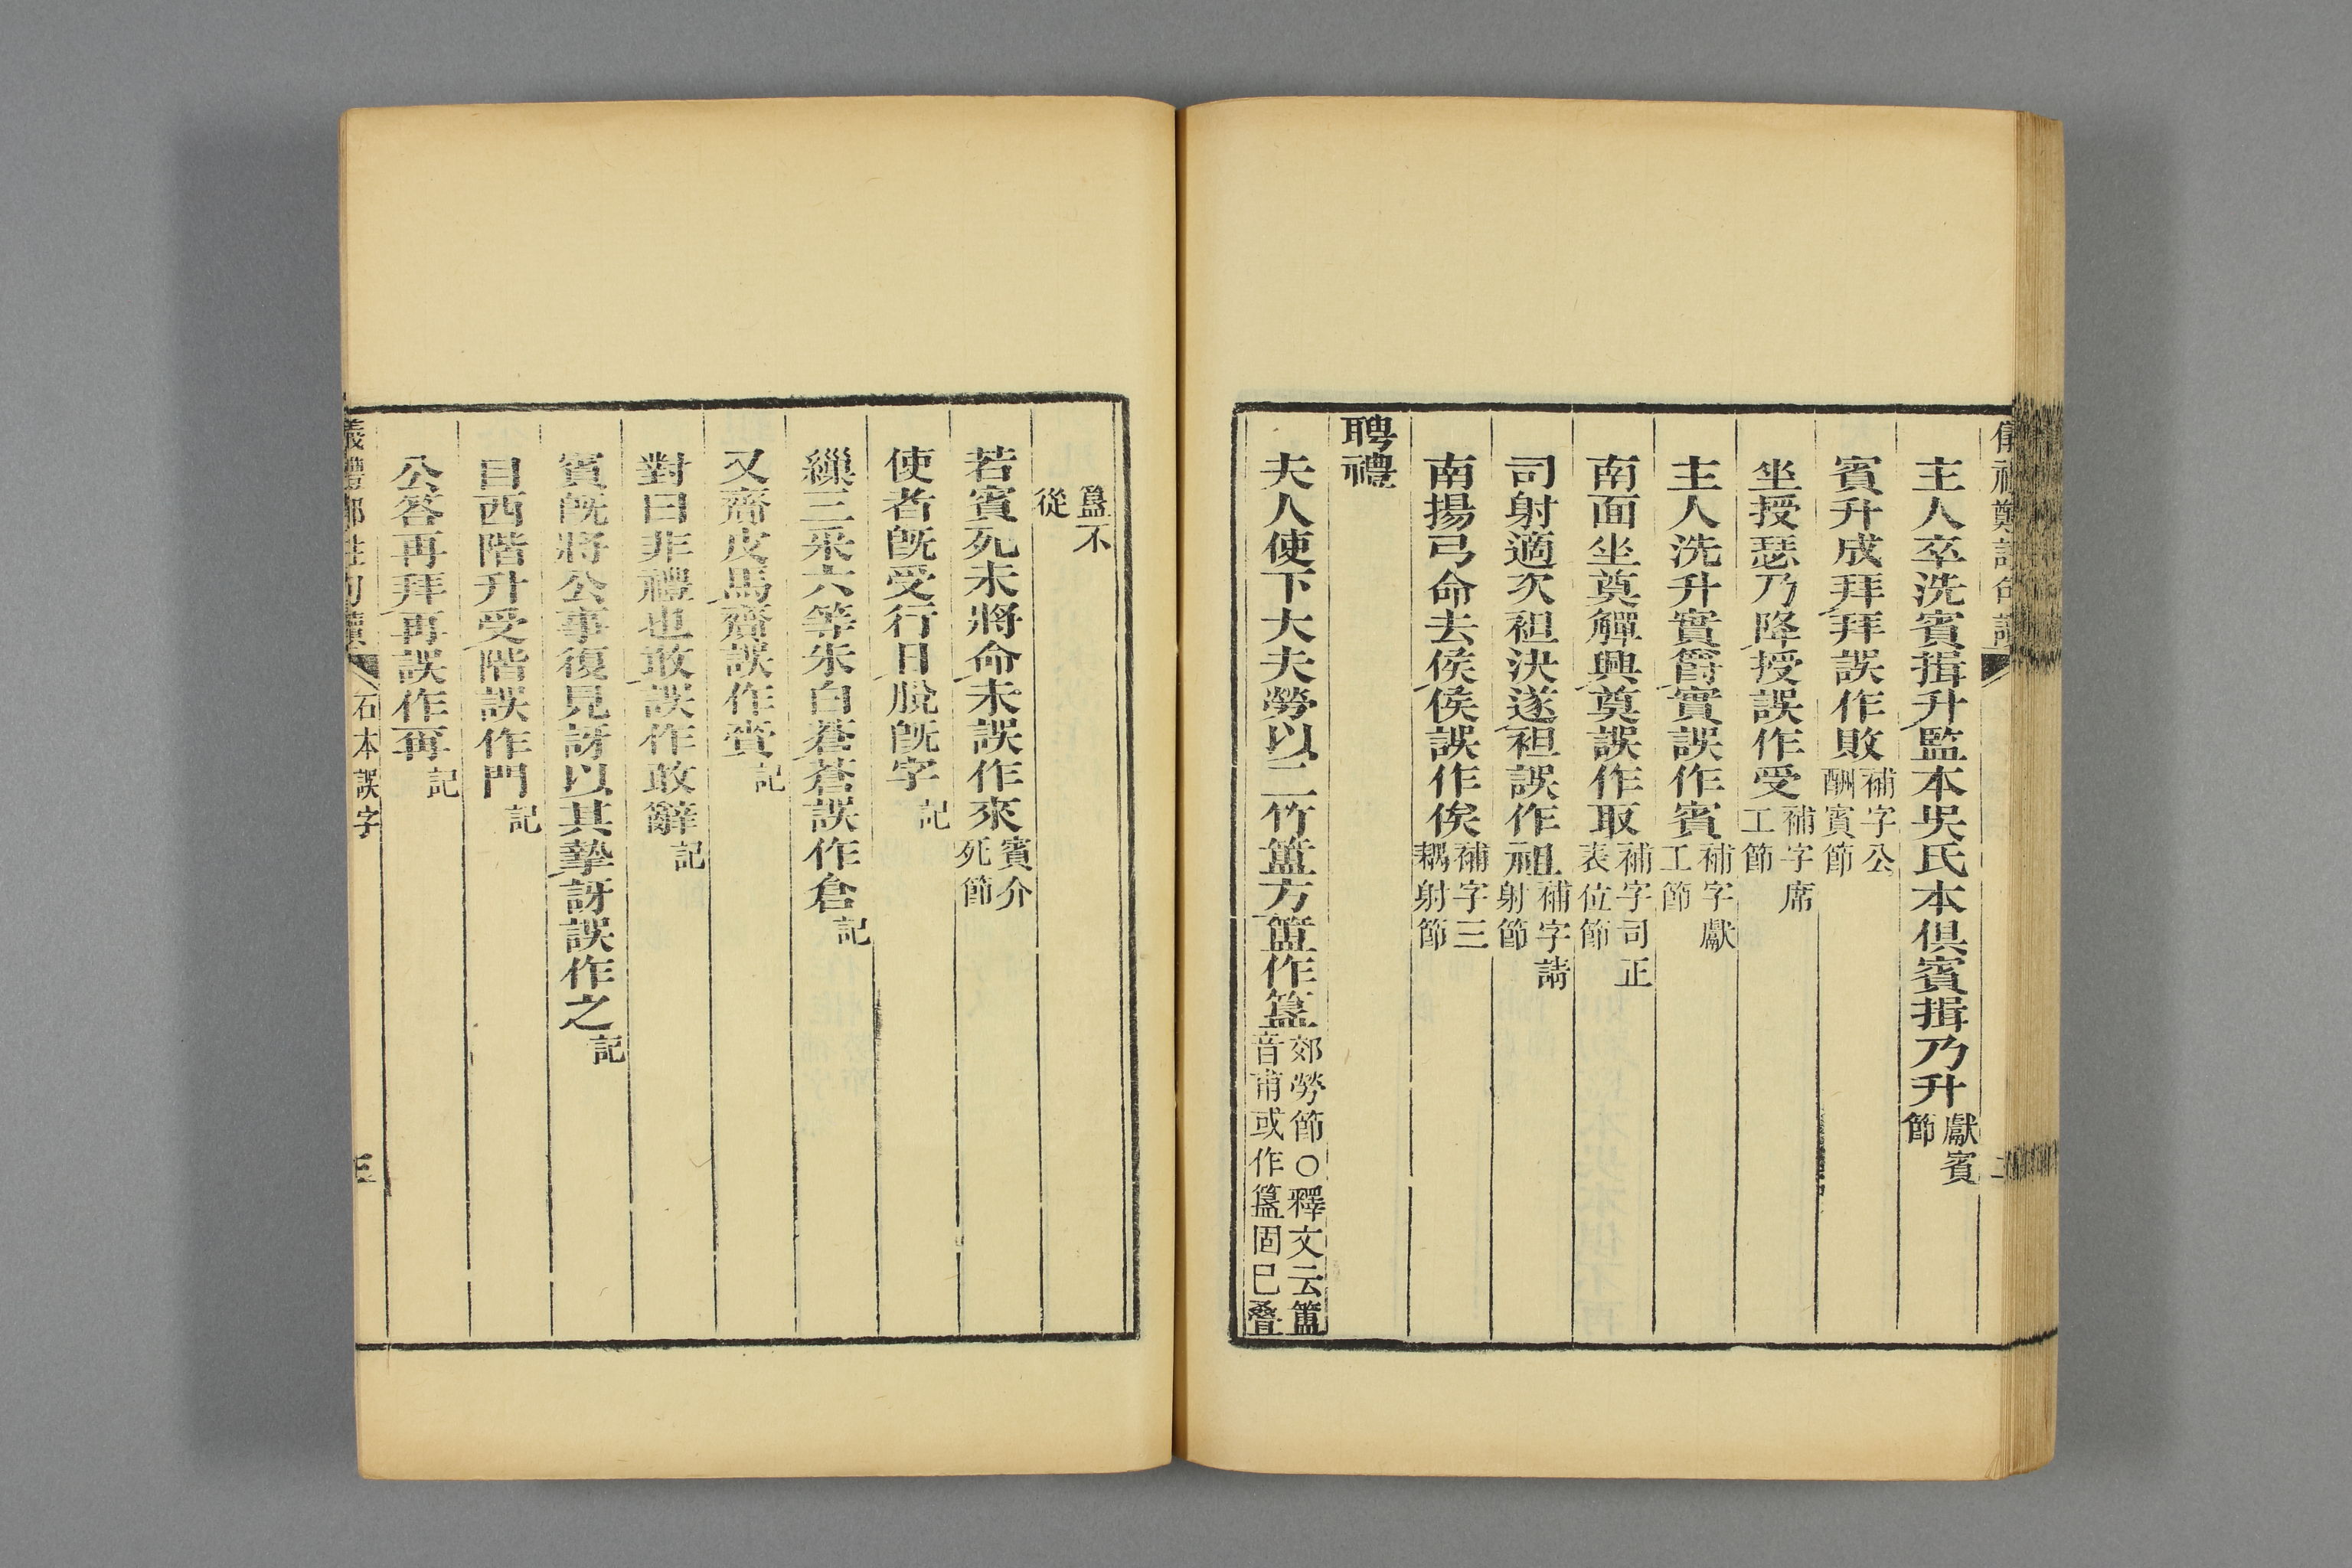 主人卒洗賓揖升監本吳氏本俱賓揖乃升獻賓節
賓升成拜拜誤作敗補字公酬賓節
坐授瑟乃降授誤作受補字席工節
主人洗升實爵實誤作賓補字獻工節
南面坐奠觶興奠誤作取補字司正表位節
司射適次袒決遂袒誤作祖補字請射節
南揚弓命去侯侯誤作俟補字三耦射節
聘禮
夫人使下大夫勞以二竹簠方簠作簋郊勞節○釋文云簠音甫或作簋固已疊
簋不從
若賓死未將命未誤作來賓介死節
使者旣受行日脫旣字記
繅三采六等朱白蒼蒼誤作倉記
又齎皮馬齎誤作賫記
對曰非禮也敢誤作敢辭記
賓旣將公事復見訝以其摯訝誤作之記
自西階升受階誤作門記
公答再拜再誤作再記
石本誤字
三